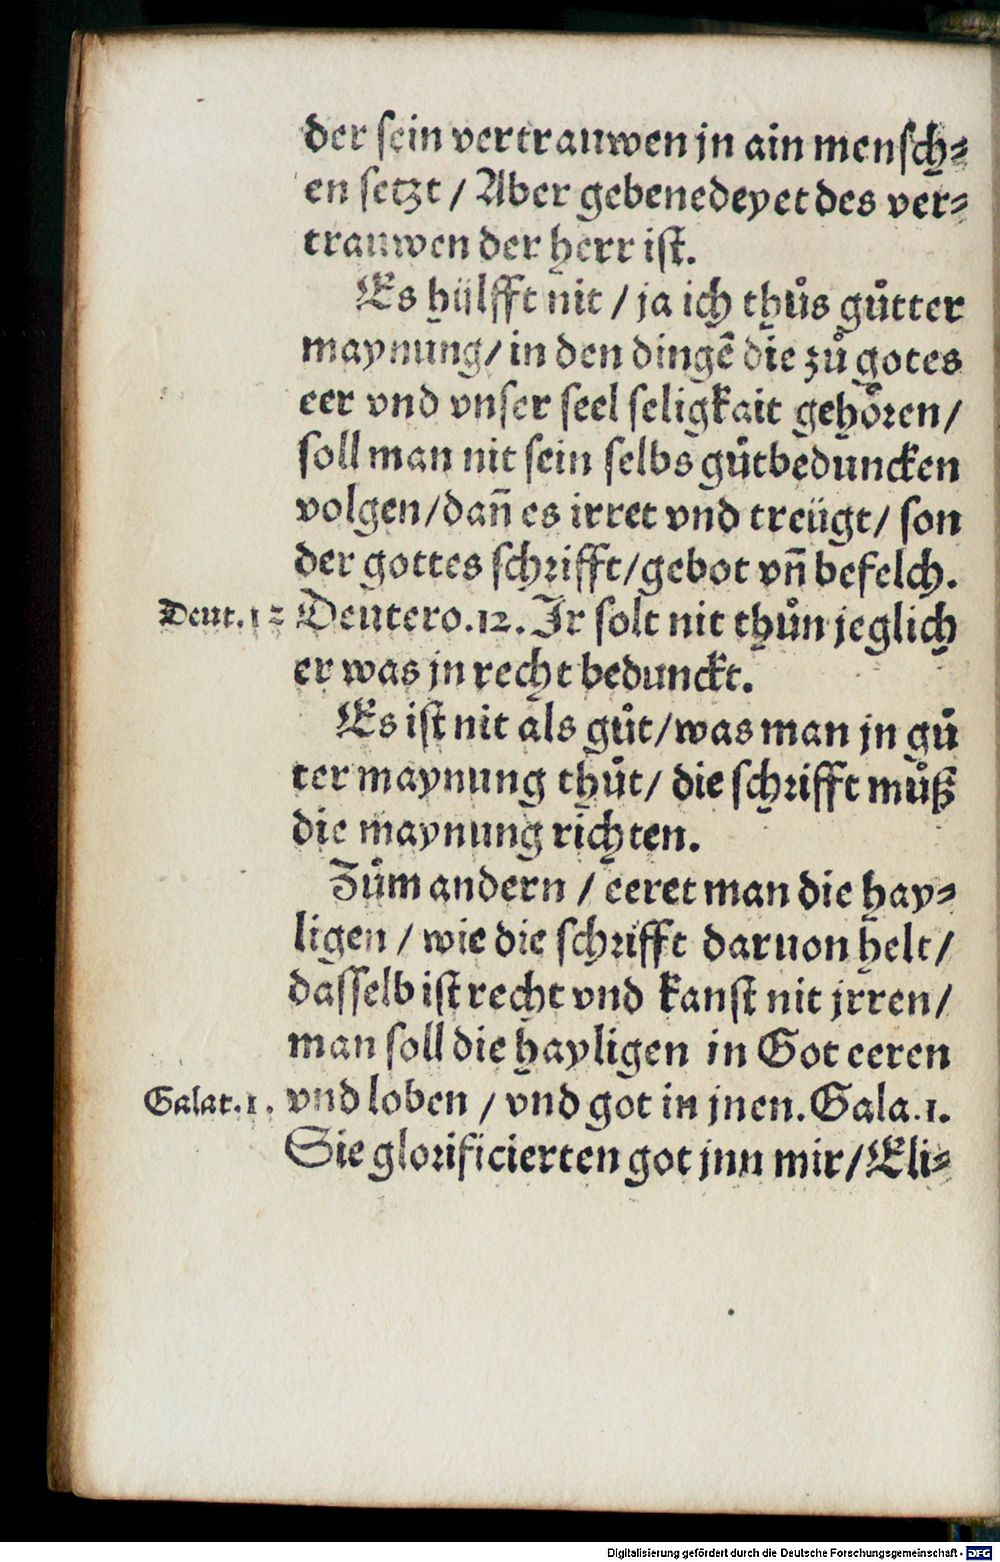 der sein vertrauwen jn ain mensch⸗
en setzt / Aber gebenedeyet des ver⸗
trauwen der herr ist.
Es hülfft nit / ja ich thůs gůtter
maynung/ in den dingē die zů gotes
eer vnd vnser seel seligkait gehören/
soll man nit sein selbs gůtbeduncken
volgen/dañ es irret vnd treügt/ son
der gottes schrifft/gebot vñ befelch.
Deut. 12 Deutero.12. Jr solt nit thůn jeglich
er was jn recht bedunckt.
Es ist nit als gůt/was man jn gů
ter maynung thůt/ die schrifft můß
die maynung richten.
Zům andern / eeret man die hay⸗
ligen / wie die schrifft daruon helt/
dasselb ist recht vnd kanst nit jrren/
man soll die hayligen in Got eeren
Galat.1. vnd loben / vnd got in jnen. Gala.1.
Sie glorificierten got jnn mir/ Eli⸗
Digitalisierung gefördert durch die Deutsche Forschungsgemeinschaft - DFG